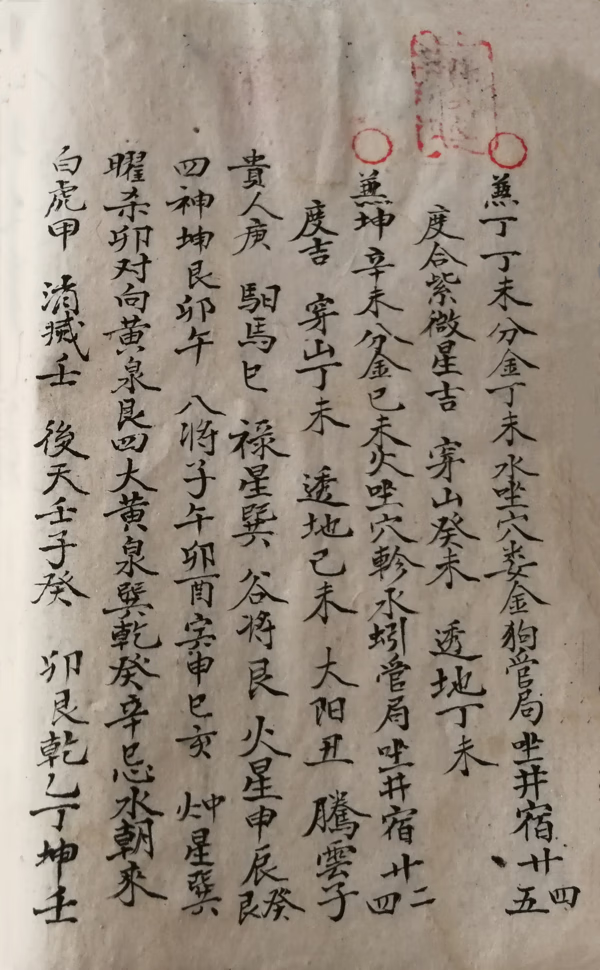 兼丁丁未分金丁未水坐穴娄金狗管局坐井宿廿四五
度合紫微星吉 穿山癸未 透地丁未
兼坤辛未分金已未火坐穴軫水蚓管局坐井宿廿二四
度吉 穿山丁未 透地己未 大阳丑 騰雲子
貴人庚 馹馬巳 禄星巽 谷将艮 火星申辰癸艮
四神坤艮卯午 八将子午卯酉寅申巳亥 炉星巽
曜杀卯对向黄泉艮四大黄泉巽乾癸辛忌水朝來
白虎甲 消滅壬 後天壬子癸 卯艮乾乙丁坤壬